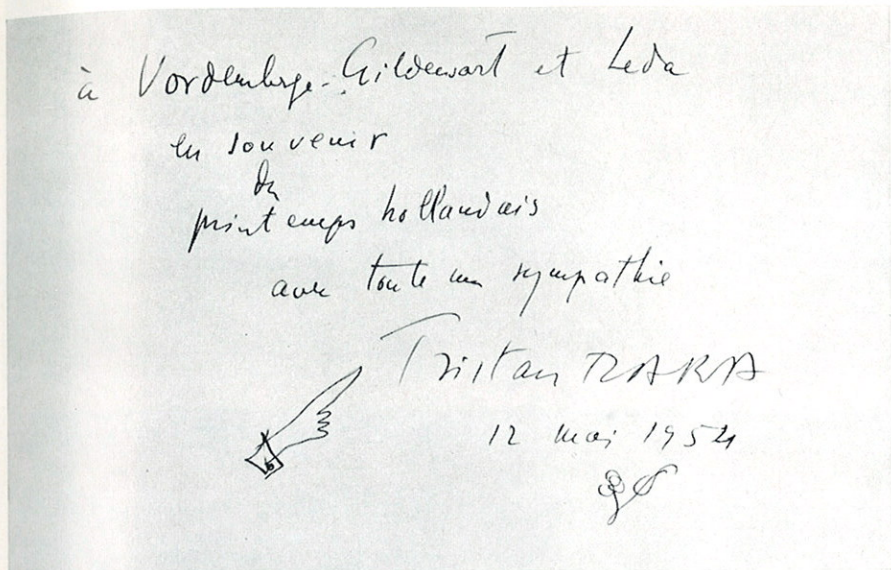 à Vordemberge-Gildewart et Leda
en souvenir
du
printemps hollandais
avec toute ma sympathie
Tristan TZARA
12 mai 1954